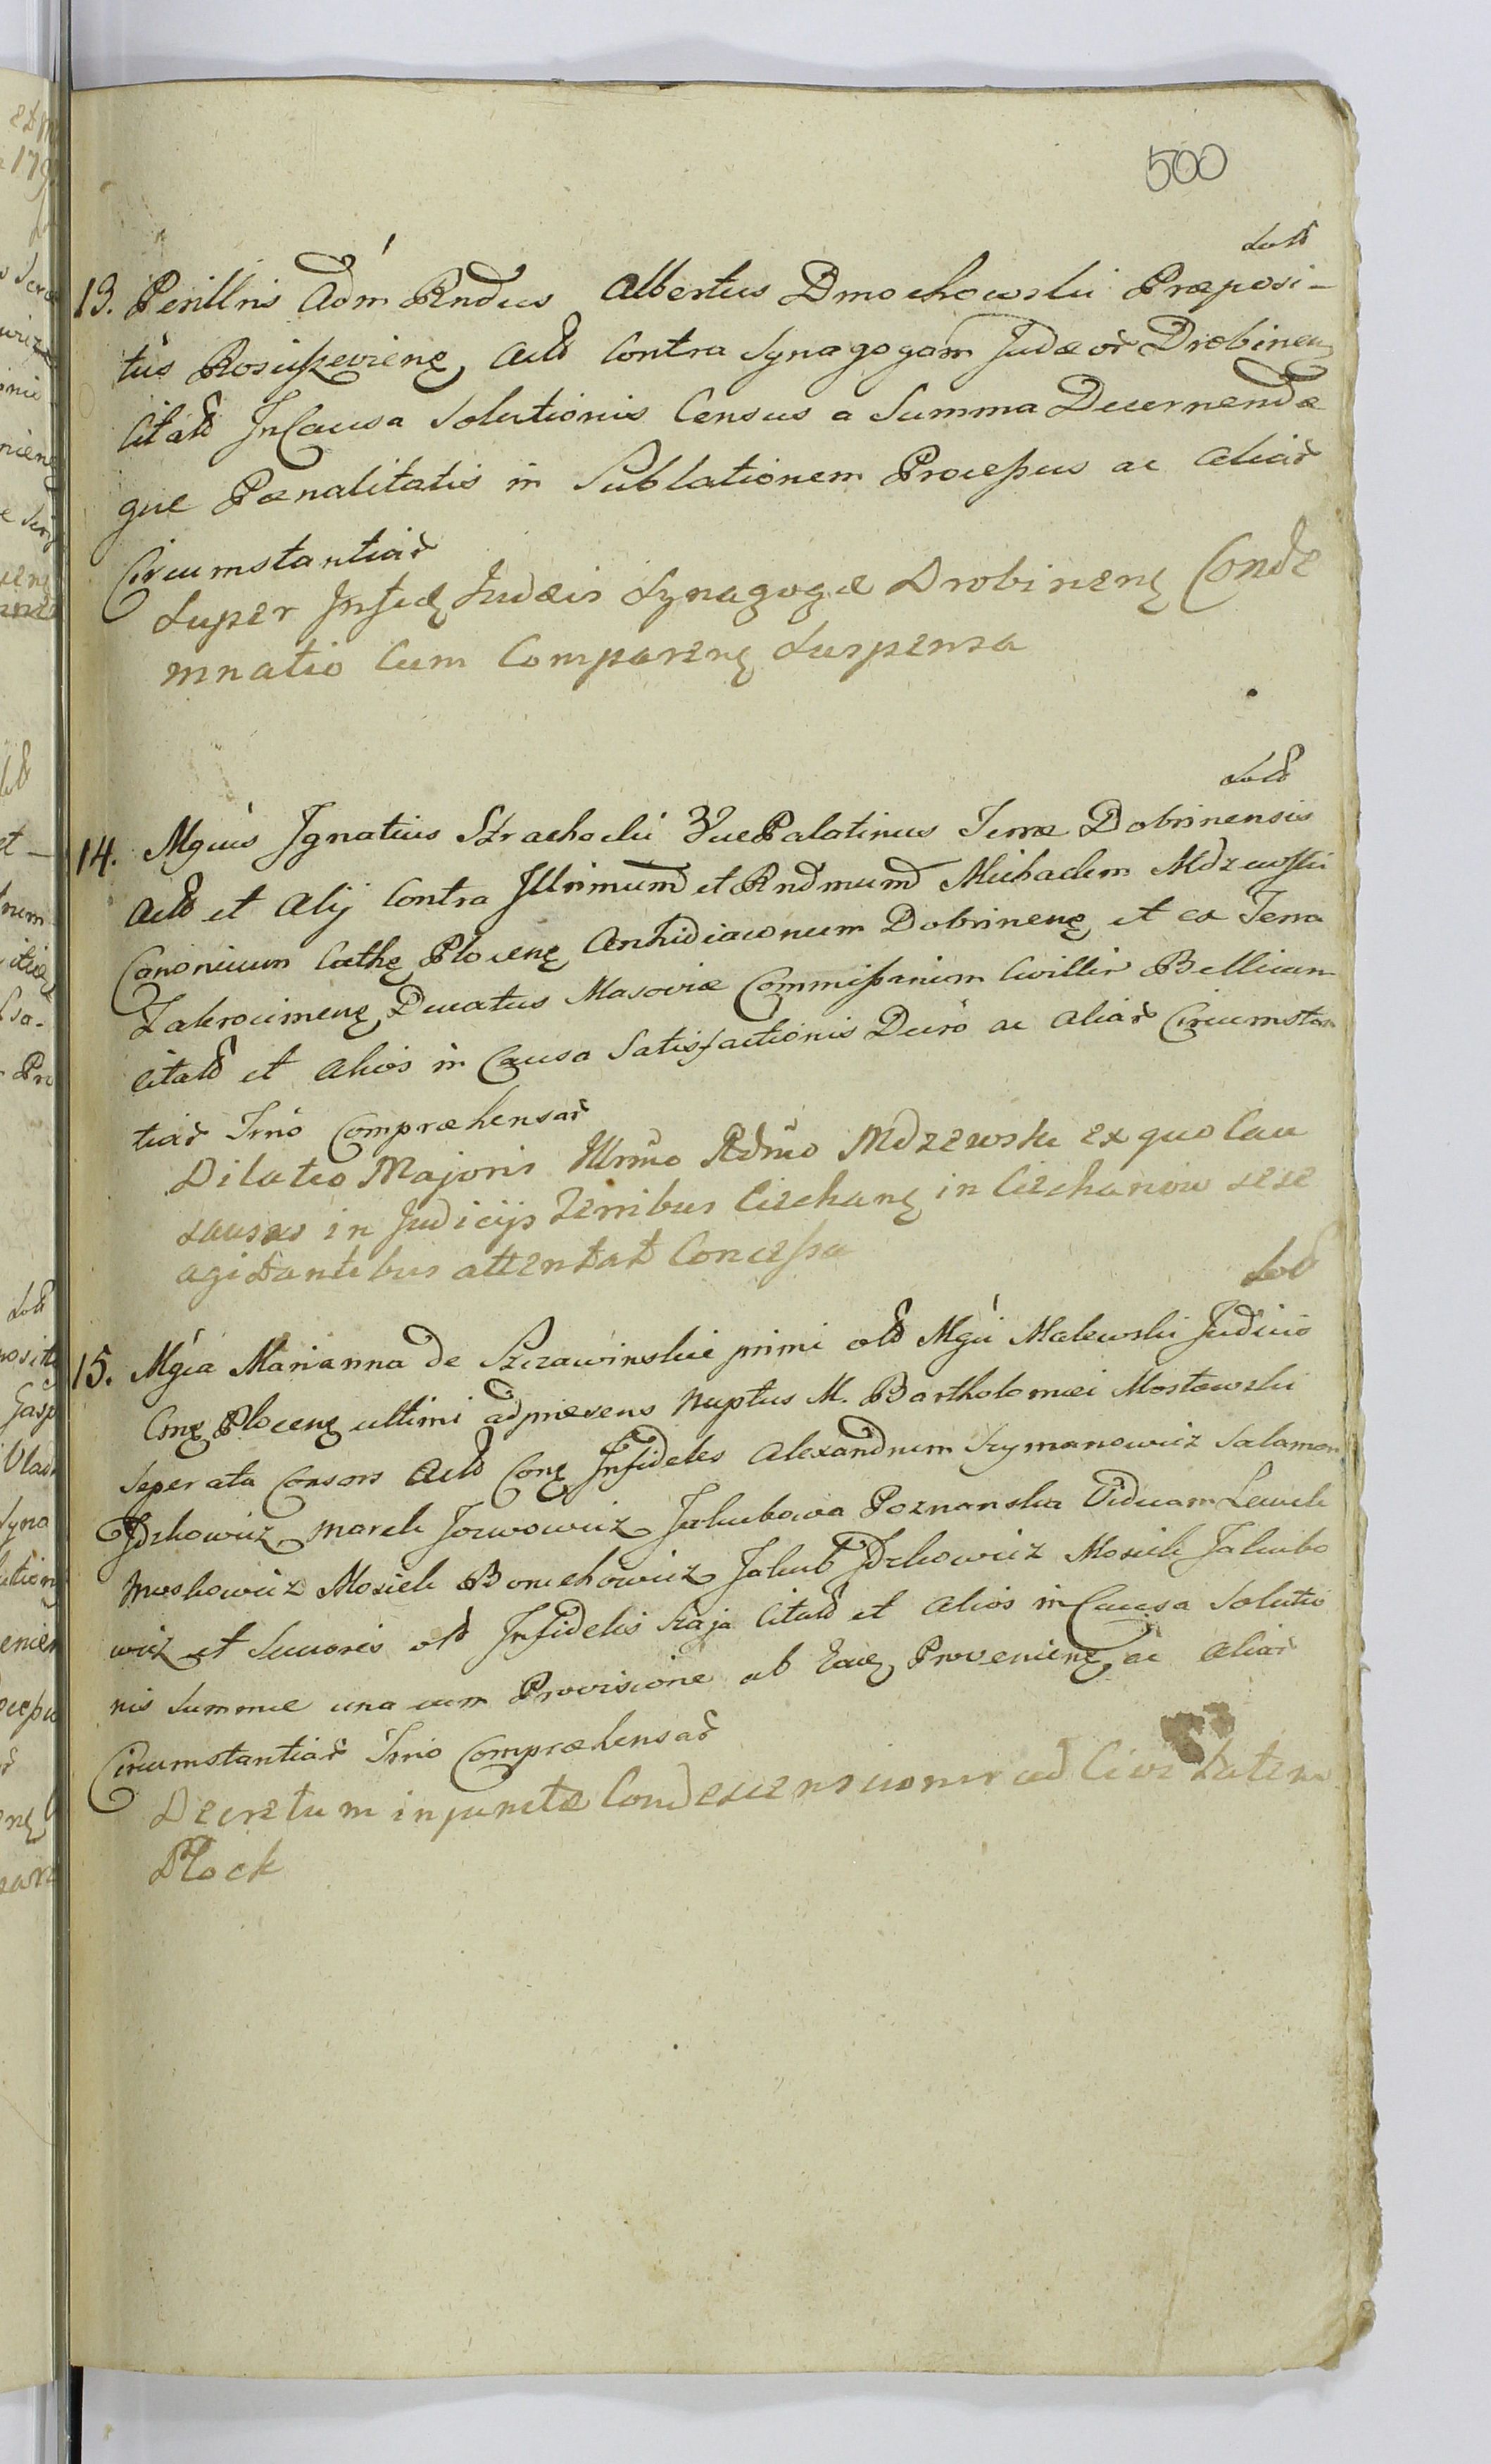 500
Sold
13. Perillris Adm Rndus Albertus Dmochowski Præposi-
tus Rosciszeviene Actd Contra Synagogam Judæor Drobinen
Citatd In Causa Solutionis Census a Summa Decernendæ
que Pœnalitatis in Sublationem Processus ac aliar
Circumstantiar
Super Infid Judæis Synagogæ Drobinens Conde
mnatio Cum Comparens Suspensa
Sold
14. Mgcus Ignatius Strachocki VicePalatinus Terræ Dobrinensis
Actd et Alij Contra Illrimumd et Rndmumd Michaelem Mdzewski
Canonicum Cathe Plocens Archidiaconum Dobrinens et ex Terra
Zakrocimens Ducatus Masoviæ Commissarium Civillir Bellicum
Citatd et Alios in Causa Satisfactionis Decro ac aliar Circumstan
tiar Trno Compræhensar
Dilatio Majoris Illrimo Rdmo Mdzewski ex quo Cau
sausas in Judicijs Terribus Ciechans in Ciechanow sese
agitantibus attentat Concessa
Sold
15. Mgca Marianna de Szczawinskie primi old Mgci Malewski Judicio
Cons Plocens ultimi ad præsens Nuptus M. Bartholomæi Mostowski
Seperata Consors Actd Cone Infideles Alexandrum Szymanowicz Salamon
Idzkowicz Marek Jozwowicz Jakubowa Poznanska Viduam Lewek
Moskowicz Mosiek Boruchowicz Jakub Idzkowicz Mosiek Jakubo
wicz et Sucores old Infidelis Szaja Citatd et Alios in Causa Solutio
nis Summæ una cum Provisione ab Eade Proveniens ac aliar
Circumstantiar Trno Compræhensar
Decretum injunctæ Condescensionis ad Civitatem
Plock